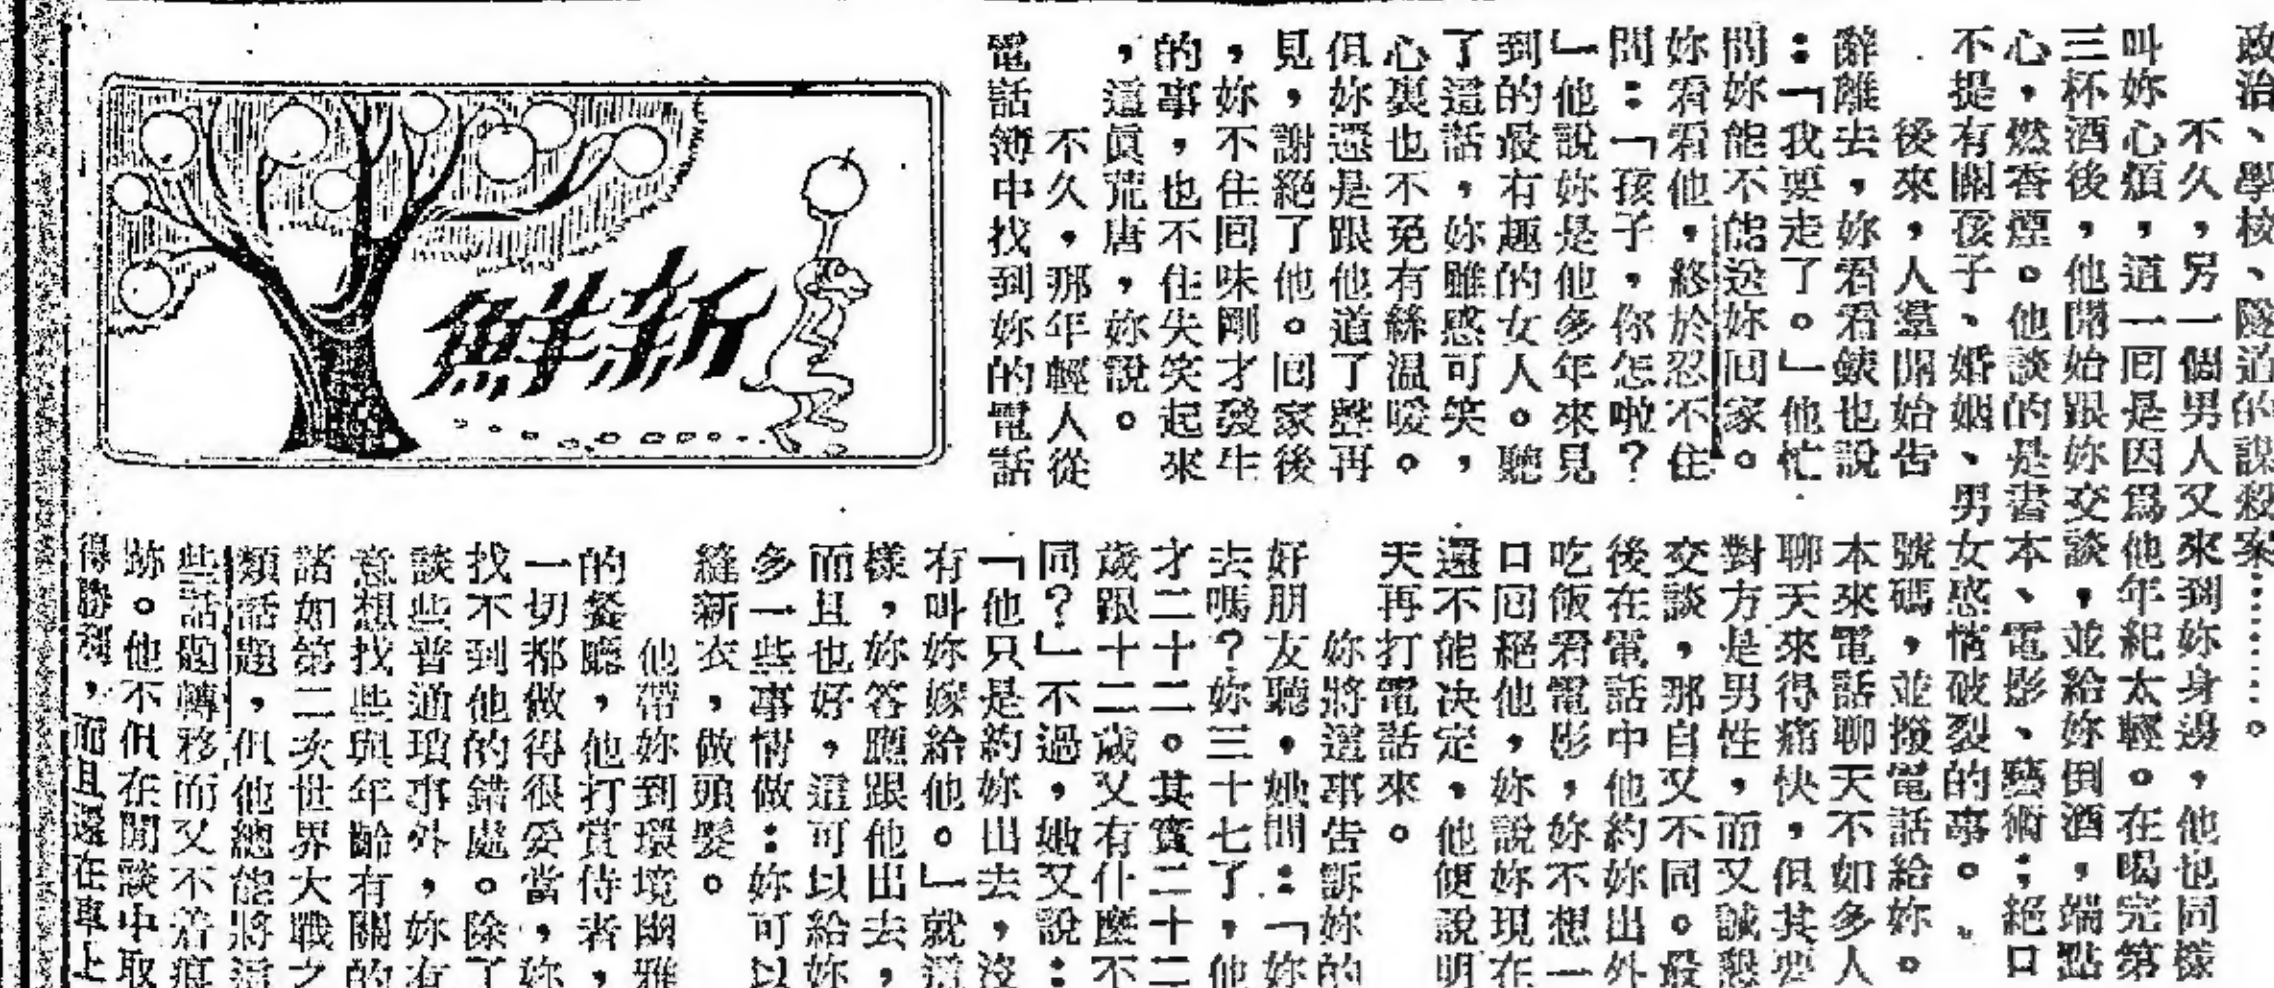 政治、學校、隧道的謀殺案………。
不久，另一個男人又來到妳身邊，他也同樣
叫妳心煩，這一回是因爲他年紀太輕。在喝完第
三杯酒後，他開始跟妳交談，並給妳倒酒，端點
心，燃香煙。他談的是書本、電影、藝術；絕口
不提有關孩子、婚姻、男女惑情破裂的事。
後來，人羣開始告
辭離去，妳看看錶也說
：「我要走了。」他忙
問妳能不能送妳回家。
妳看看他，終於忍不住
問：「孩子，你怎啦？
」他說妳是他多年來見
到的最有趣的女人。聽
了這話，妳雖感可笑，
心裏也不免有絲溫暖。
但妳還是跟他道了聲再
見，謝絕了他。回家後
，妳不住回味剛才發生
的事，也不住失笑起來
，這眞荒唐，妳說。
不久，那年輕人從
電話簿中找到妳的電話
新鮮
號碼，並撥電話給妳。
本來電話聊天不如多人
聊天來得痛快，但其要
對方是男性，而又誠懇
交談，那自又不同。最
後在電話中他約妳出外
吃飯看電影，妳不想一
口回絕他，妳說妳現在
還不能決定，他便說明
天再打電話來。
妳將這事告訴妳的
好朋友聽，她問：「妳
去嗎？妳三十七了，他
才二十二。其實二十二
歲跟十二歲又有什麽不
同？」不過，她又說：
「他只是約妳出去，沒
有叫妳嫁給他。」就這
樣，妳答應跟他出去，
而且也好，這可以給妳
多一些事情做：妳可以
縫新衣，做頭髮。
他帶妳到環境幽雅
的餐廳，他打賞侍者，
一切都做得很妥當，妳
找不到他的錯處。除了
談些普通瑣事外，妳有
意想找些與年齡有關的
諸如第二次世界大戰之
類話題，但他總能將這
些話題轉移而又不着痕
跡。他不但在閒談中取
得勝利，而且還在車上